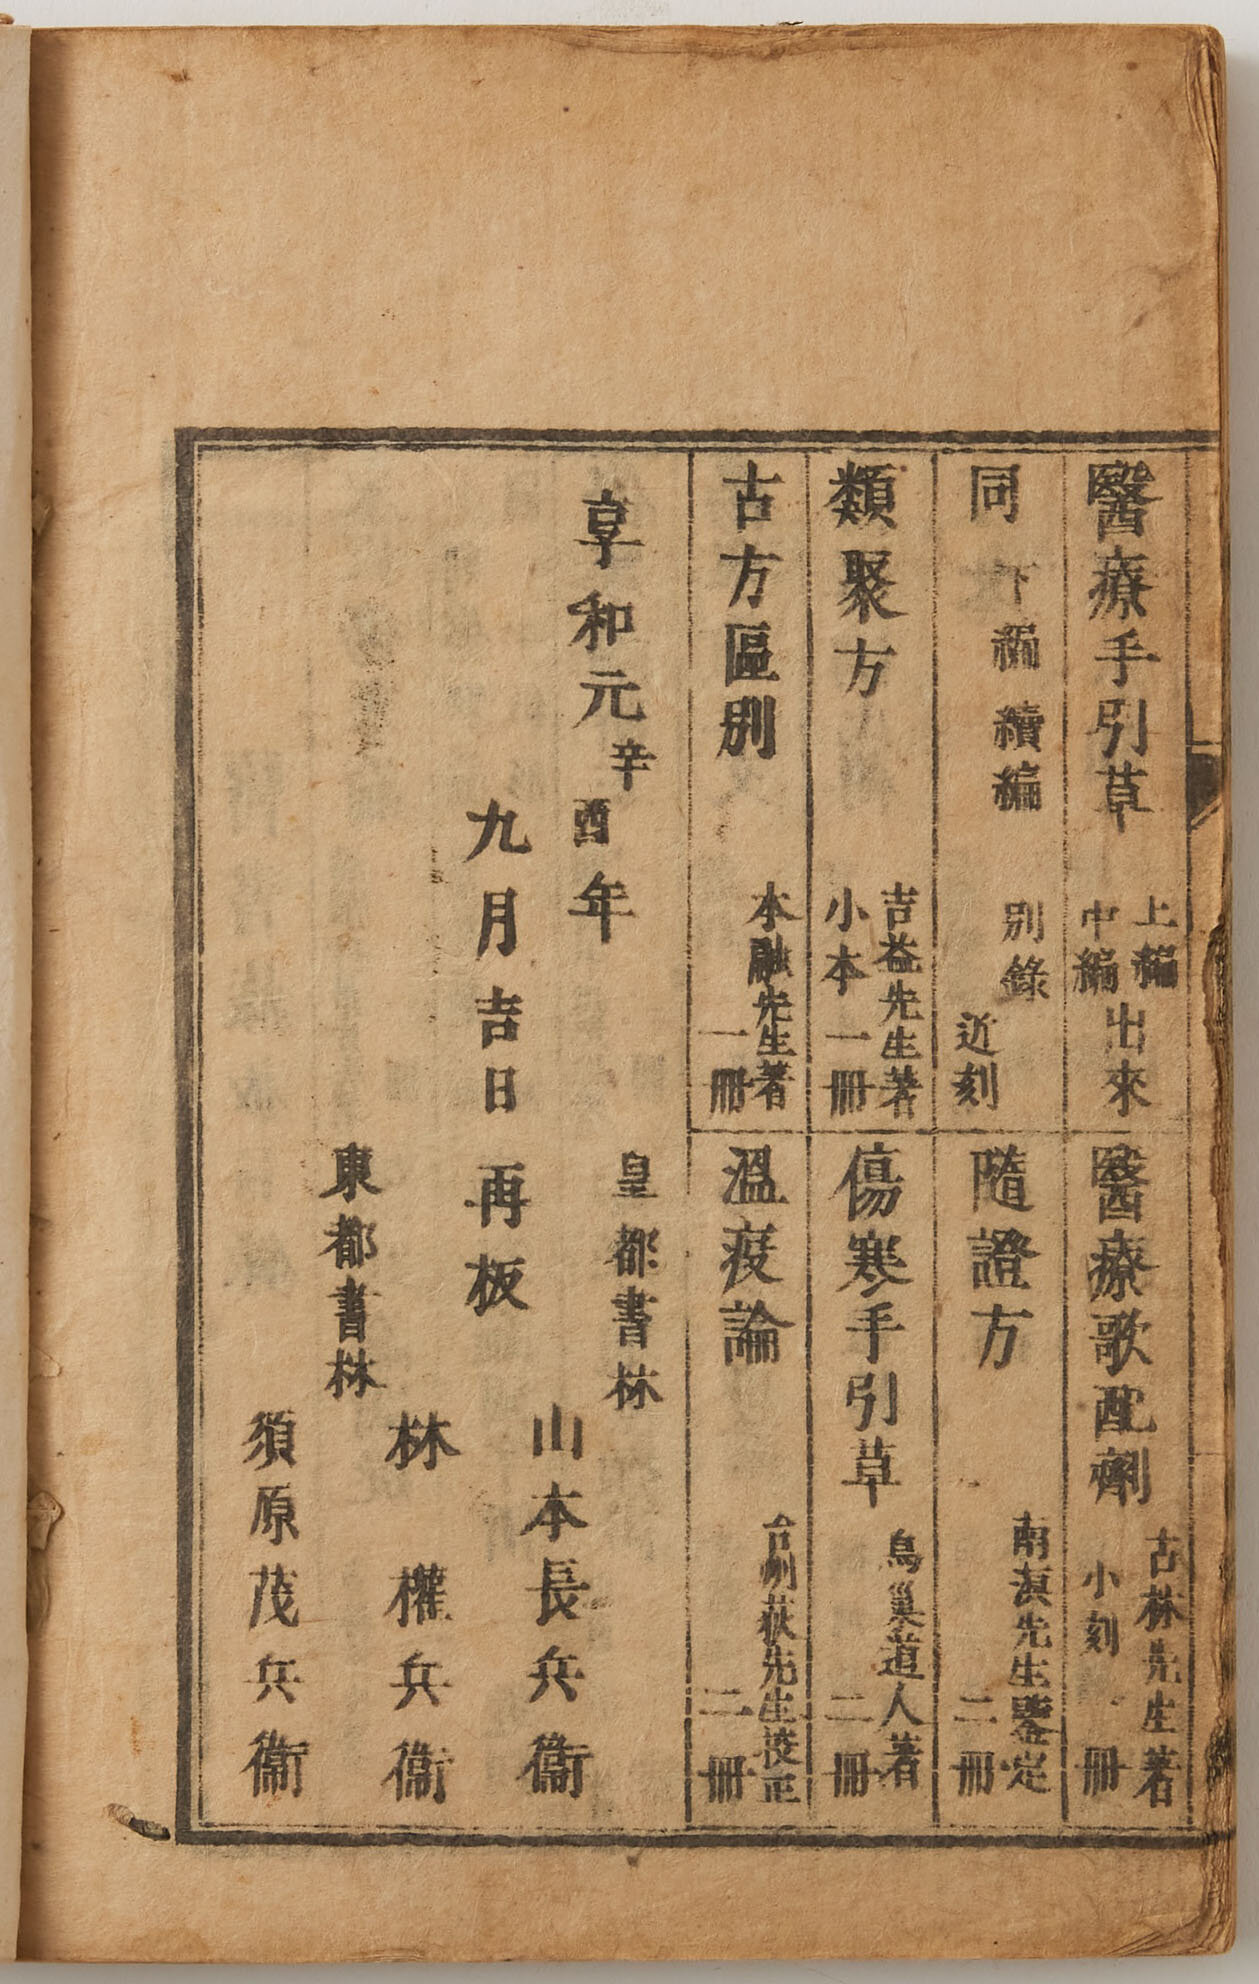 醫療手引草 上編 中編 出來
醫療歌配劑 古林先生著 小刻 冊
同 下編 續編 別錄 近刻
隨證方 南溟先生鑒定 二冊
類聚方 吉益先生著 小本一冊
傷寒手引草 鳥巢道人著 二冊
古方區別 本融先生著 一冊
溫疫論 台州荻先生挍正 二冊
享和元辛酉年
九月吉日再板
皇都書林
山本長兵衞
林權兵衞
東都書林
須原茂兵衞